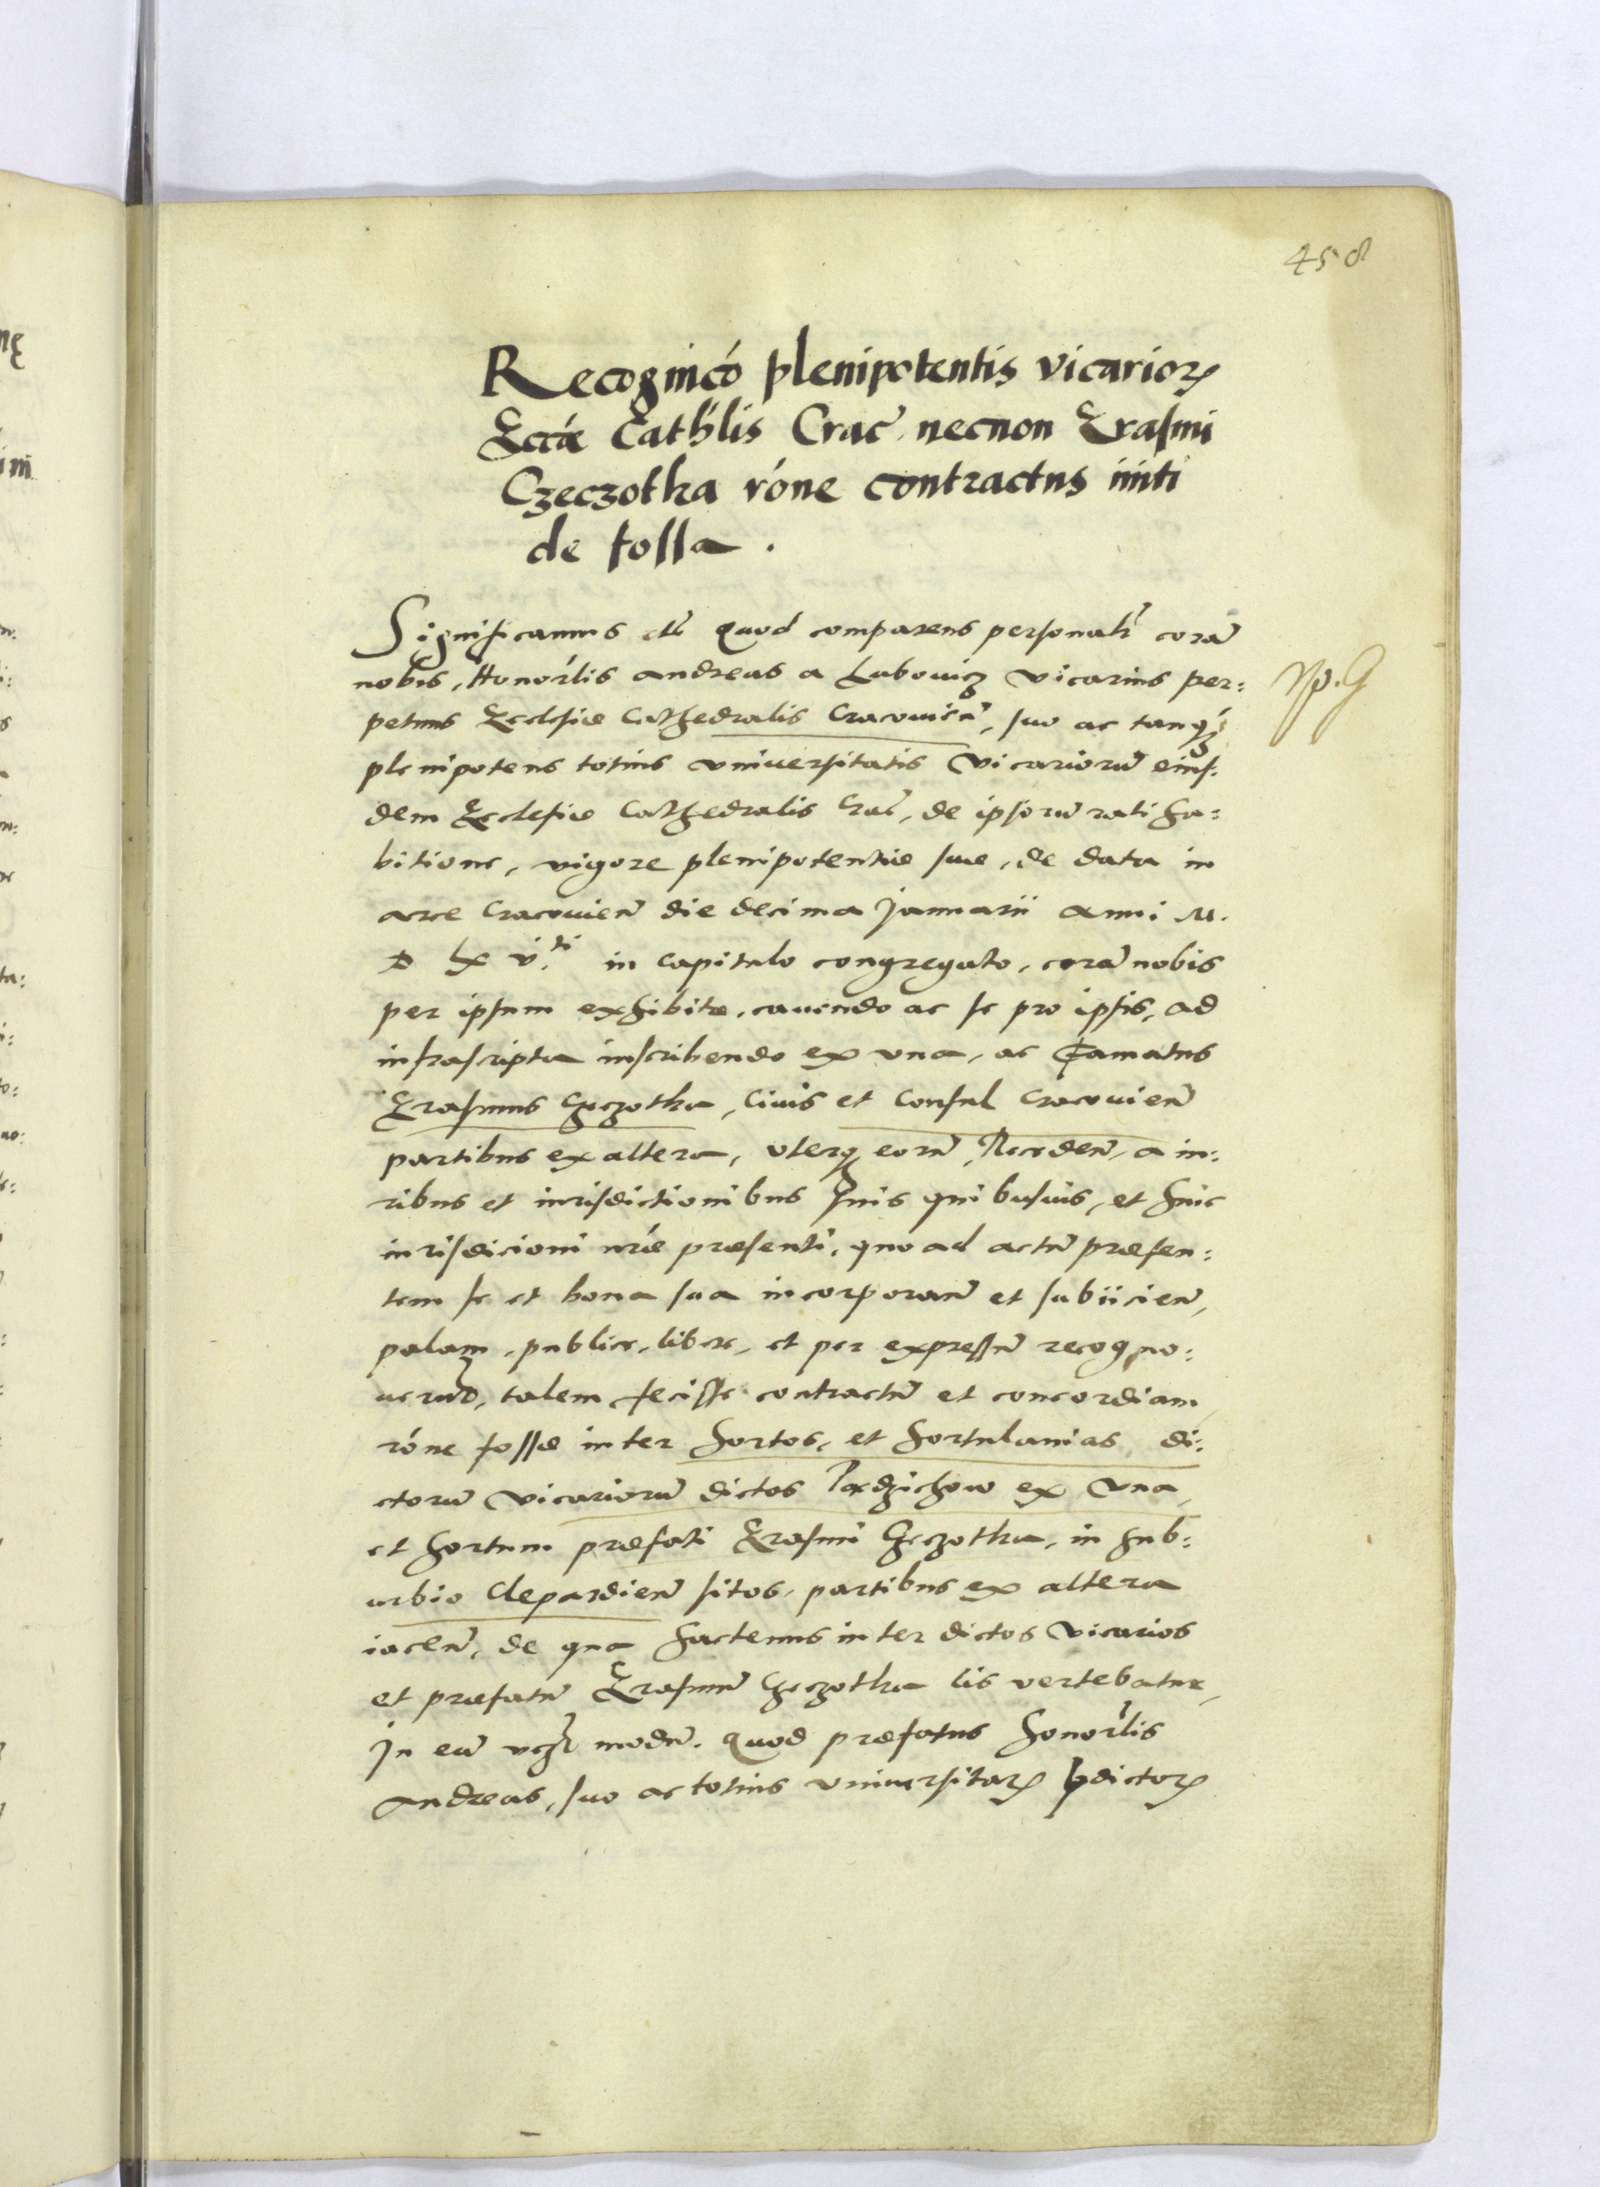 458
Recognico plenipotentis vicarioꝝ
Eccæ Cathlis Crac̃ necnon Erasmi
Czeczotha róne contractus initi
de fossa.
Significamus etc̃ Quod comparens personalr̃ corã
nobis, Honorl̃is Andreas a Lubowicz vicarius per:
petuus Ecclesiæ Cathedralis Cracovien̄, suo ac tanqꝫ
plenipotens totius vniuersitatis Vicariorũ eius:
dem Ecclesiæ Cathedralis Crac̃, de ipsorũ rati ha:
bitione, vigore plenipotentiæ suæ, de data in
arce Cracovien̄ die decima Januarii anni M.
D LX v.ti in capitulo congregato, corã nobis
per ipsum exhibitæ, cauendo ac se pro ipsis, ad
infrascripta inscribendo ex vna, ac Famatus
Erasmus Czeczotha, Ciuis et Consul Cracovien̄
partibus ex altera, vterqꝫ eorũ, Receden̄, a iu:
ribus et iurisdictionibus suis quibusuis, et huic
iurisdicioni nræ præsenti, quo ad actũ præsen:
tem se et bona sua incorporan̄ et subiicien̄,
palam, publice, libere, et per expressũ recogno:
uerũt, talem fecisse contractũ et concordiam,
róne fossæ inter hortos, et hortulanias di:
ctorũ vicariorũ dictos Pædzichow ex Vna,
et hortum præfati Erasmi Czeczotha, in sub:
urbio Clepardien̄ sitos, partibus ex altera
iacen̄, de qua hactenus inter dictos vicarios
et præfatũ Erasmũ Czeczotha lis vertebatur,
In eũ vczꝫ modũ. Quod præfatus honorl̃is
Andreas, suo ac totius vniuersitatꝫ pdictoꝝ